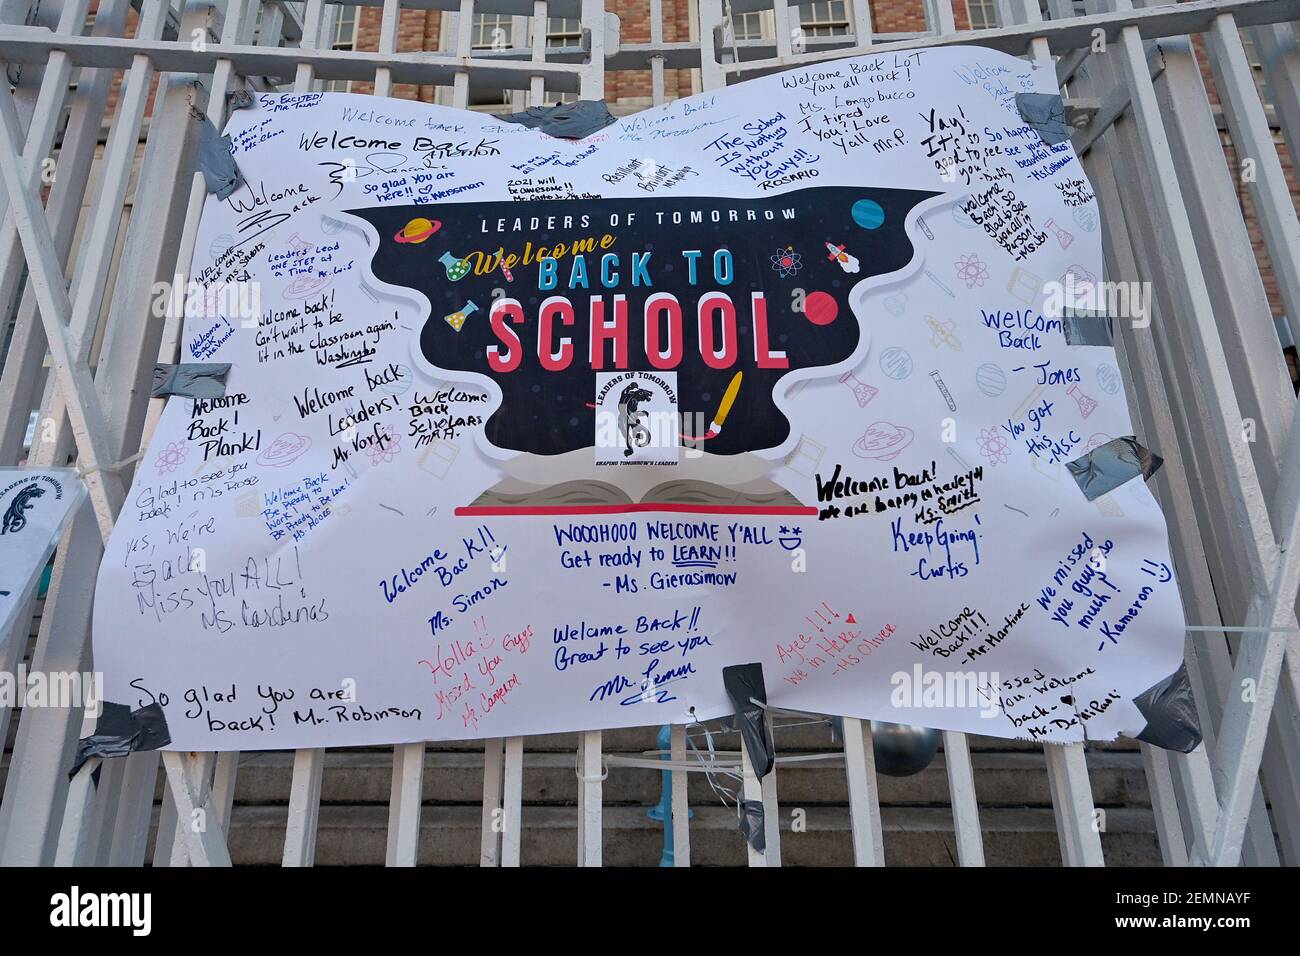 So EXCITED!
Welcome back,
Welcome Back
Allenton
So glad you are
here!!
Ms. Weissman
2021 will
be awesome!!
Resilient
&
Brilliant
Welcome Back!
The School
Is Nothing
Without
You
GUYS!!
ROSARIO
Welcome Back LoT
You all rock!
Ms. Longobucco
I tired
You? Love
Yall Mr. P.
Yay!
It's so
good to see
you,
So happy
to see your
beautiful faces
Welcome
Back! So
glad to see
you all in
person!
Welcome
Back
WELCOME
BACK GUYS
Leaders Lead
ONE STEP at
a Time
Ms. Luis
Welcome!
Back
Welcome back!
Can't wait to be
lit in the classroom again!
Washington
LEADERS OF TOMORROW
Welcome
BACK TO
SCHOOL
LEADERS OF TOMORROW
SHAPING TOMORROW'S LEADERS
WelcomE
Back
- Jones
You got
this
- MSC
Welcome
Back!
Plank!
Welcome back
Leaders!
Mr. Varfi
Welcome
Back
Scholars
MRA.
Glad to see you
back! Ms Rose
Welcome Back
Be Ready to
Work!
Be Ready to Be Love!
Ms. Moore
Welcome Back!
We are happy to have you
Ms. Smith
Keep Going!
- Curtis
Yes, We're
Back
Miss You ALL!
Ms. Cardenas
Welcome
Back!!
Ms. Simon
WOOOHOOO WELCOME Y'ALL
Get ready to LEARN!!
- Ms. Gierasimow
We missed
you guys so
much!
- Kameron!!
Holla!!
Missed You Guys
Mr. Cameron
Welcome Back!!
Great to see you
Mr. Lemm
Ayee!!!
We in Here
- Ms Oliver
Welcome
Back!!!
- Mr. Martinez
Missed
you. Welcome
back -
So glad you are
back! Mr. Robinson
LEADERS OF TOMORROW
alamy
Image ID: 2EMNAYF
www.alamy.com